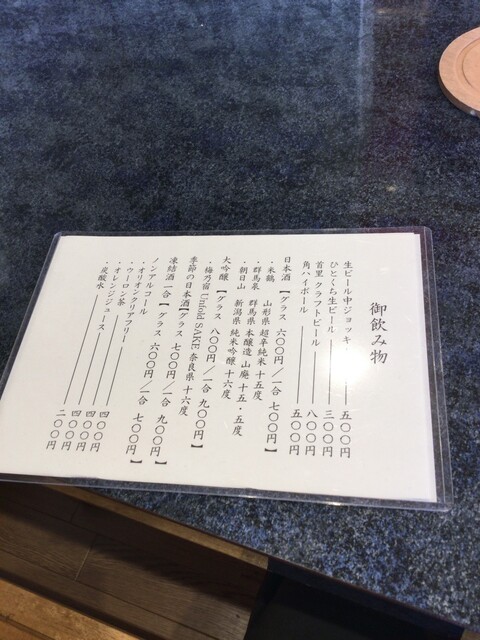 御飲み物
生ビール中ジョッキー 五〇〇円
ひとくち生ビール 三〇〇円
首里クラフトビール 八〇〇円
角ハイボール 五〇〇円
日本酒【グラス 六〇〇円/一合 七〇〇円】
・米鶴 山形県 超辛純米 十五度
・群馬泉 群馬県 本醸造 山廃 十五・五度
・朝日山 新潟県 純米吟醸 十六度
大吟醸【グラス 八〇〇円/一合 九〇〇円】
・梅乃宿 Unfold SAKE 奈良県 十六度
季節の日本酒【グラス 七〇〇円/一合 九〇〇円】
凍結酒一合【グラス 六〇〇円/一合 七〇〇円】
ノンアルコール
・オリオンクリアフリー 四〇〇円
・ウーロン茶 四〇〇円
・オレンジジュース 四〇〇円
・炭酸水 二〇〇円